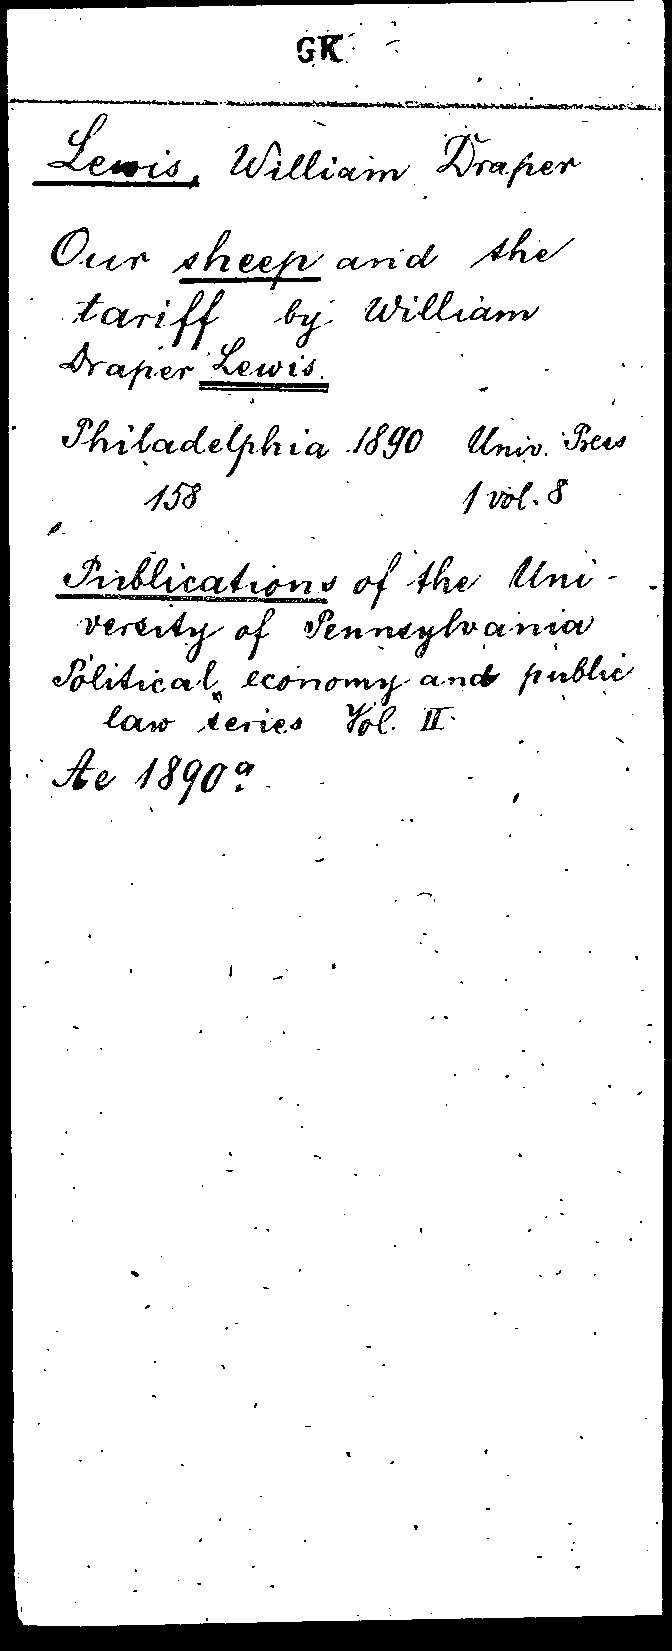 GK
Lewis, William Draper
Our sheep and the
tariff by William
Draper Lewis.
Philadelphia 1890 Univ. Press
158 1 vol. 8
Publications of the Uni-
versity of Pennsylvania
Political economy and public
law series Vol. II.
Ae 1890a